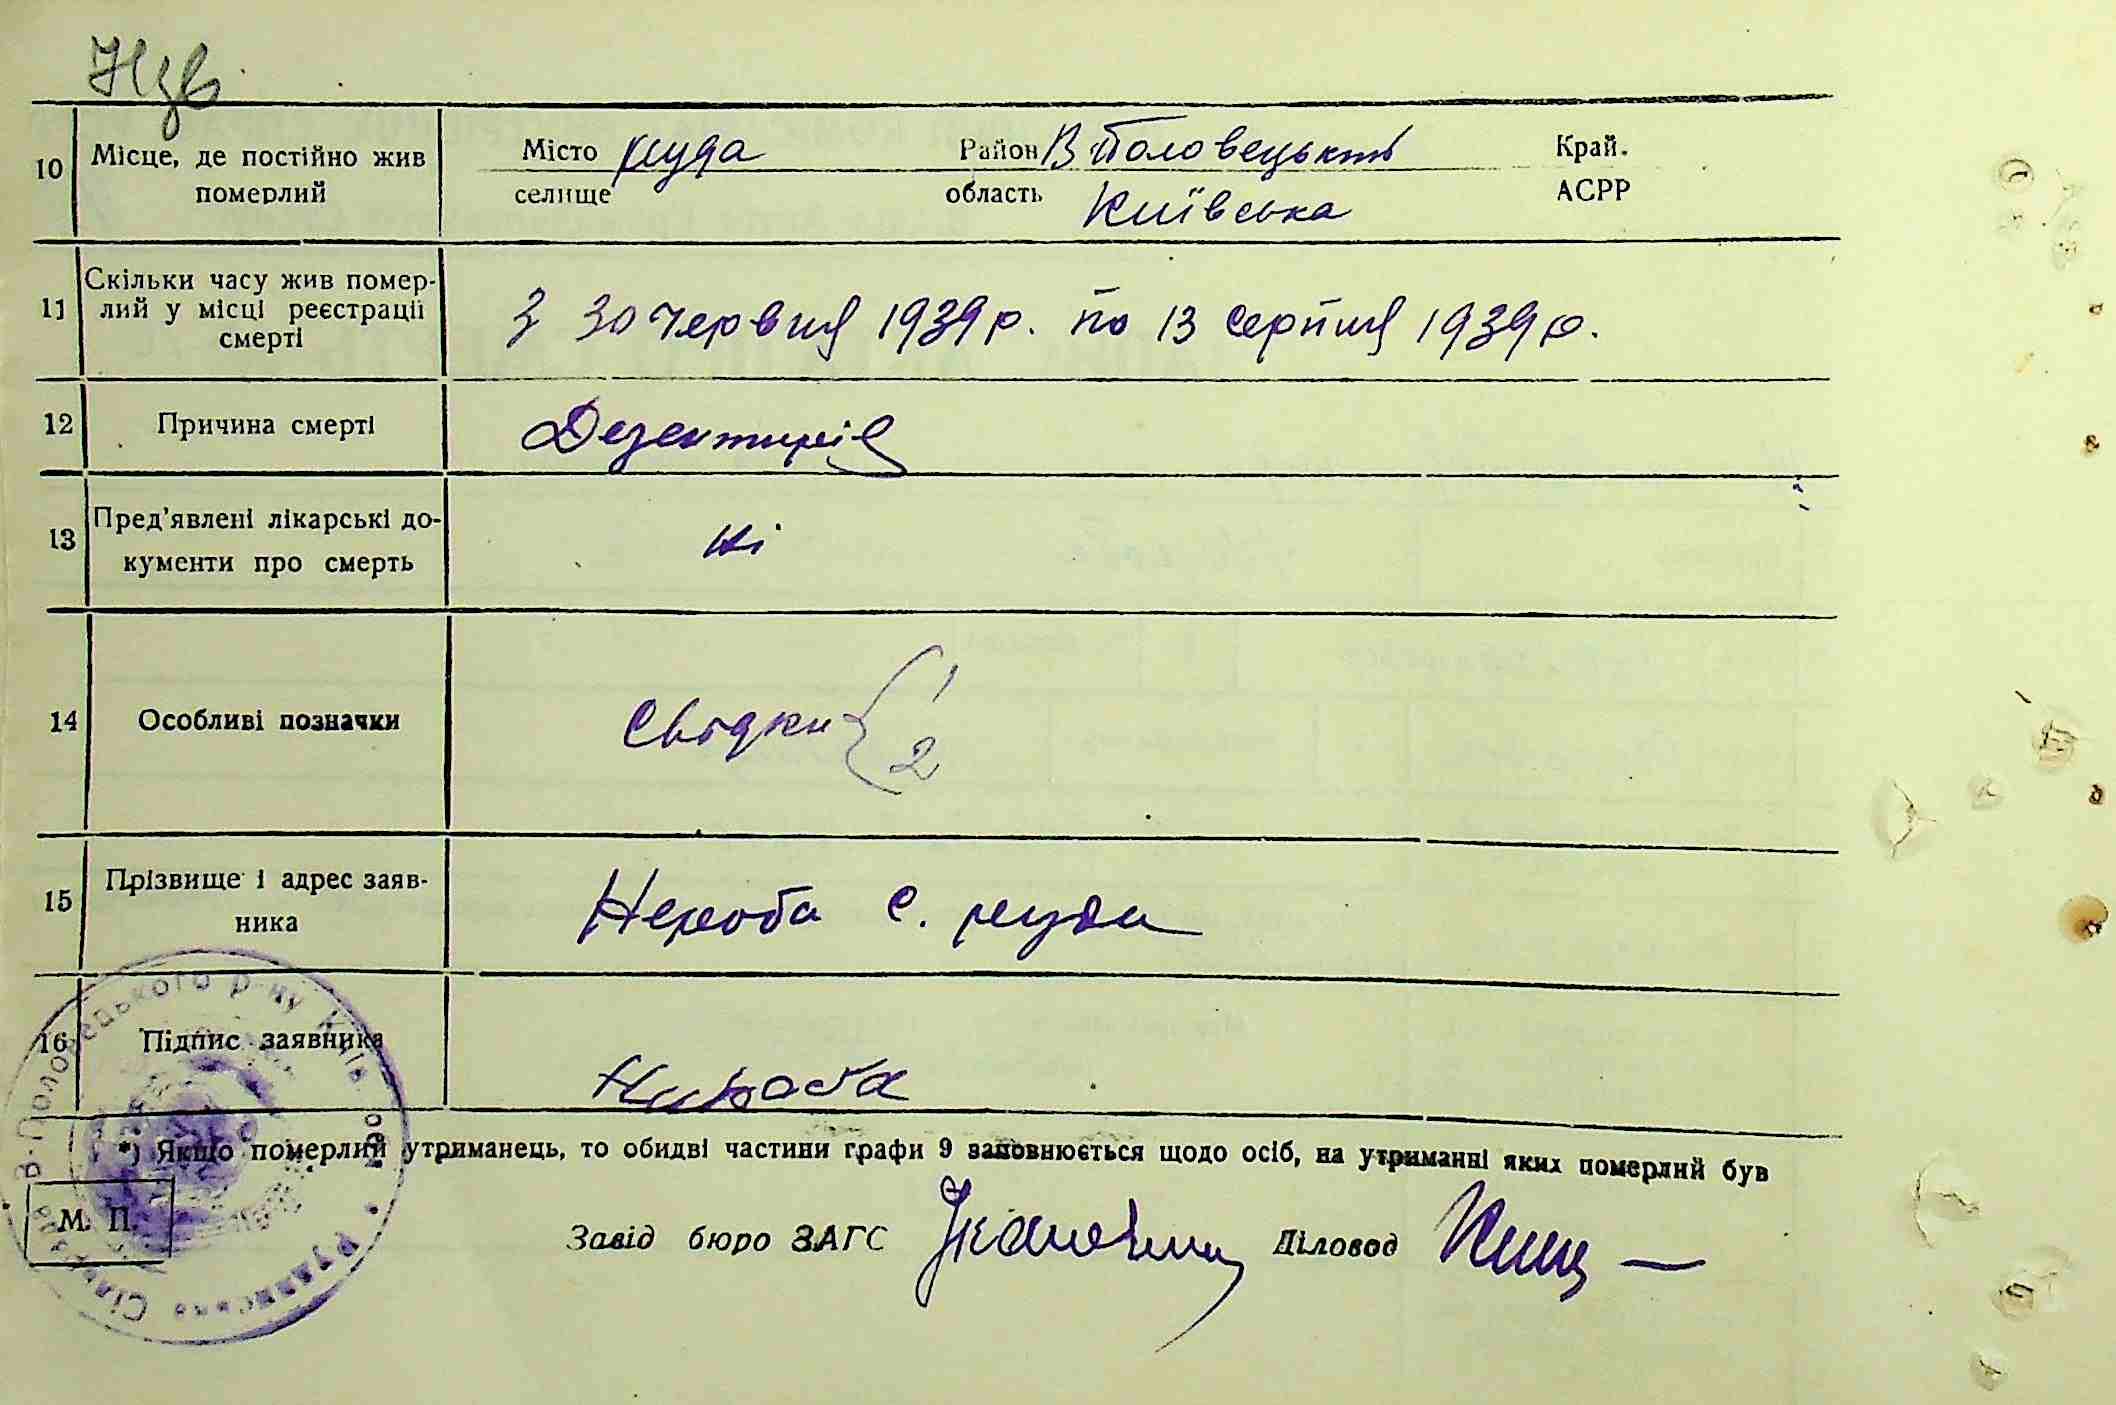 10 Місце, де постійно жив померлий
Місто руда Район В-Половецький Край.
селище область Київська АСРР
11 Скільки часу жив помер-
лий у місці реєстрації
смерті
З 30 червня 1939 р. по 13 серпня 1939 р.
12 Причина смерті Дезентирія
13 Пред'явлені лікарські до-
кументи про смерть
ні
14 Особливі позначки Свідки { 1
2
15 Прізвище і адрес заяв-
ника
Нероба с. руда
16 Підпис заявника
*) Якщо померлий утриманець, то обидві частини графи 9 заповнюється щодо осіб, на утриманні яких померлий був
М. П.
Завід бюро ЗАГС Діловод
В-Половецького р-ну Київ. обл. Рудянська Сільська Рада